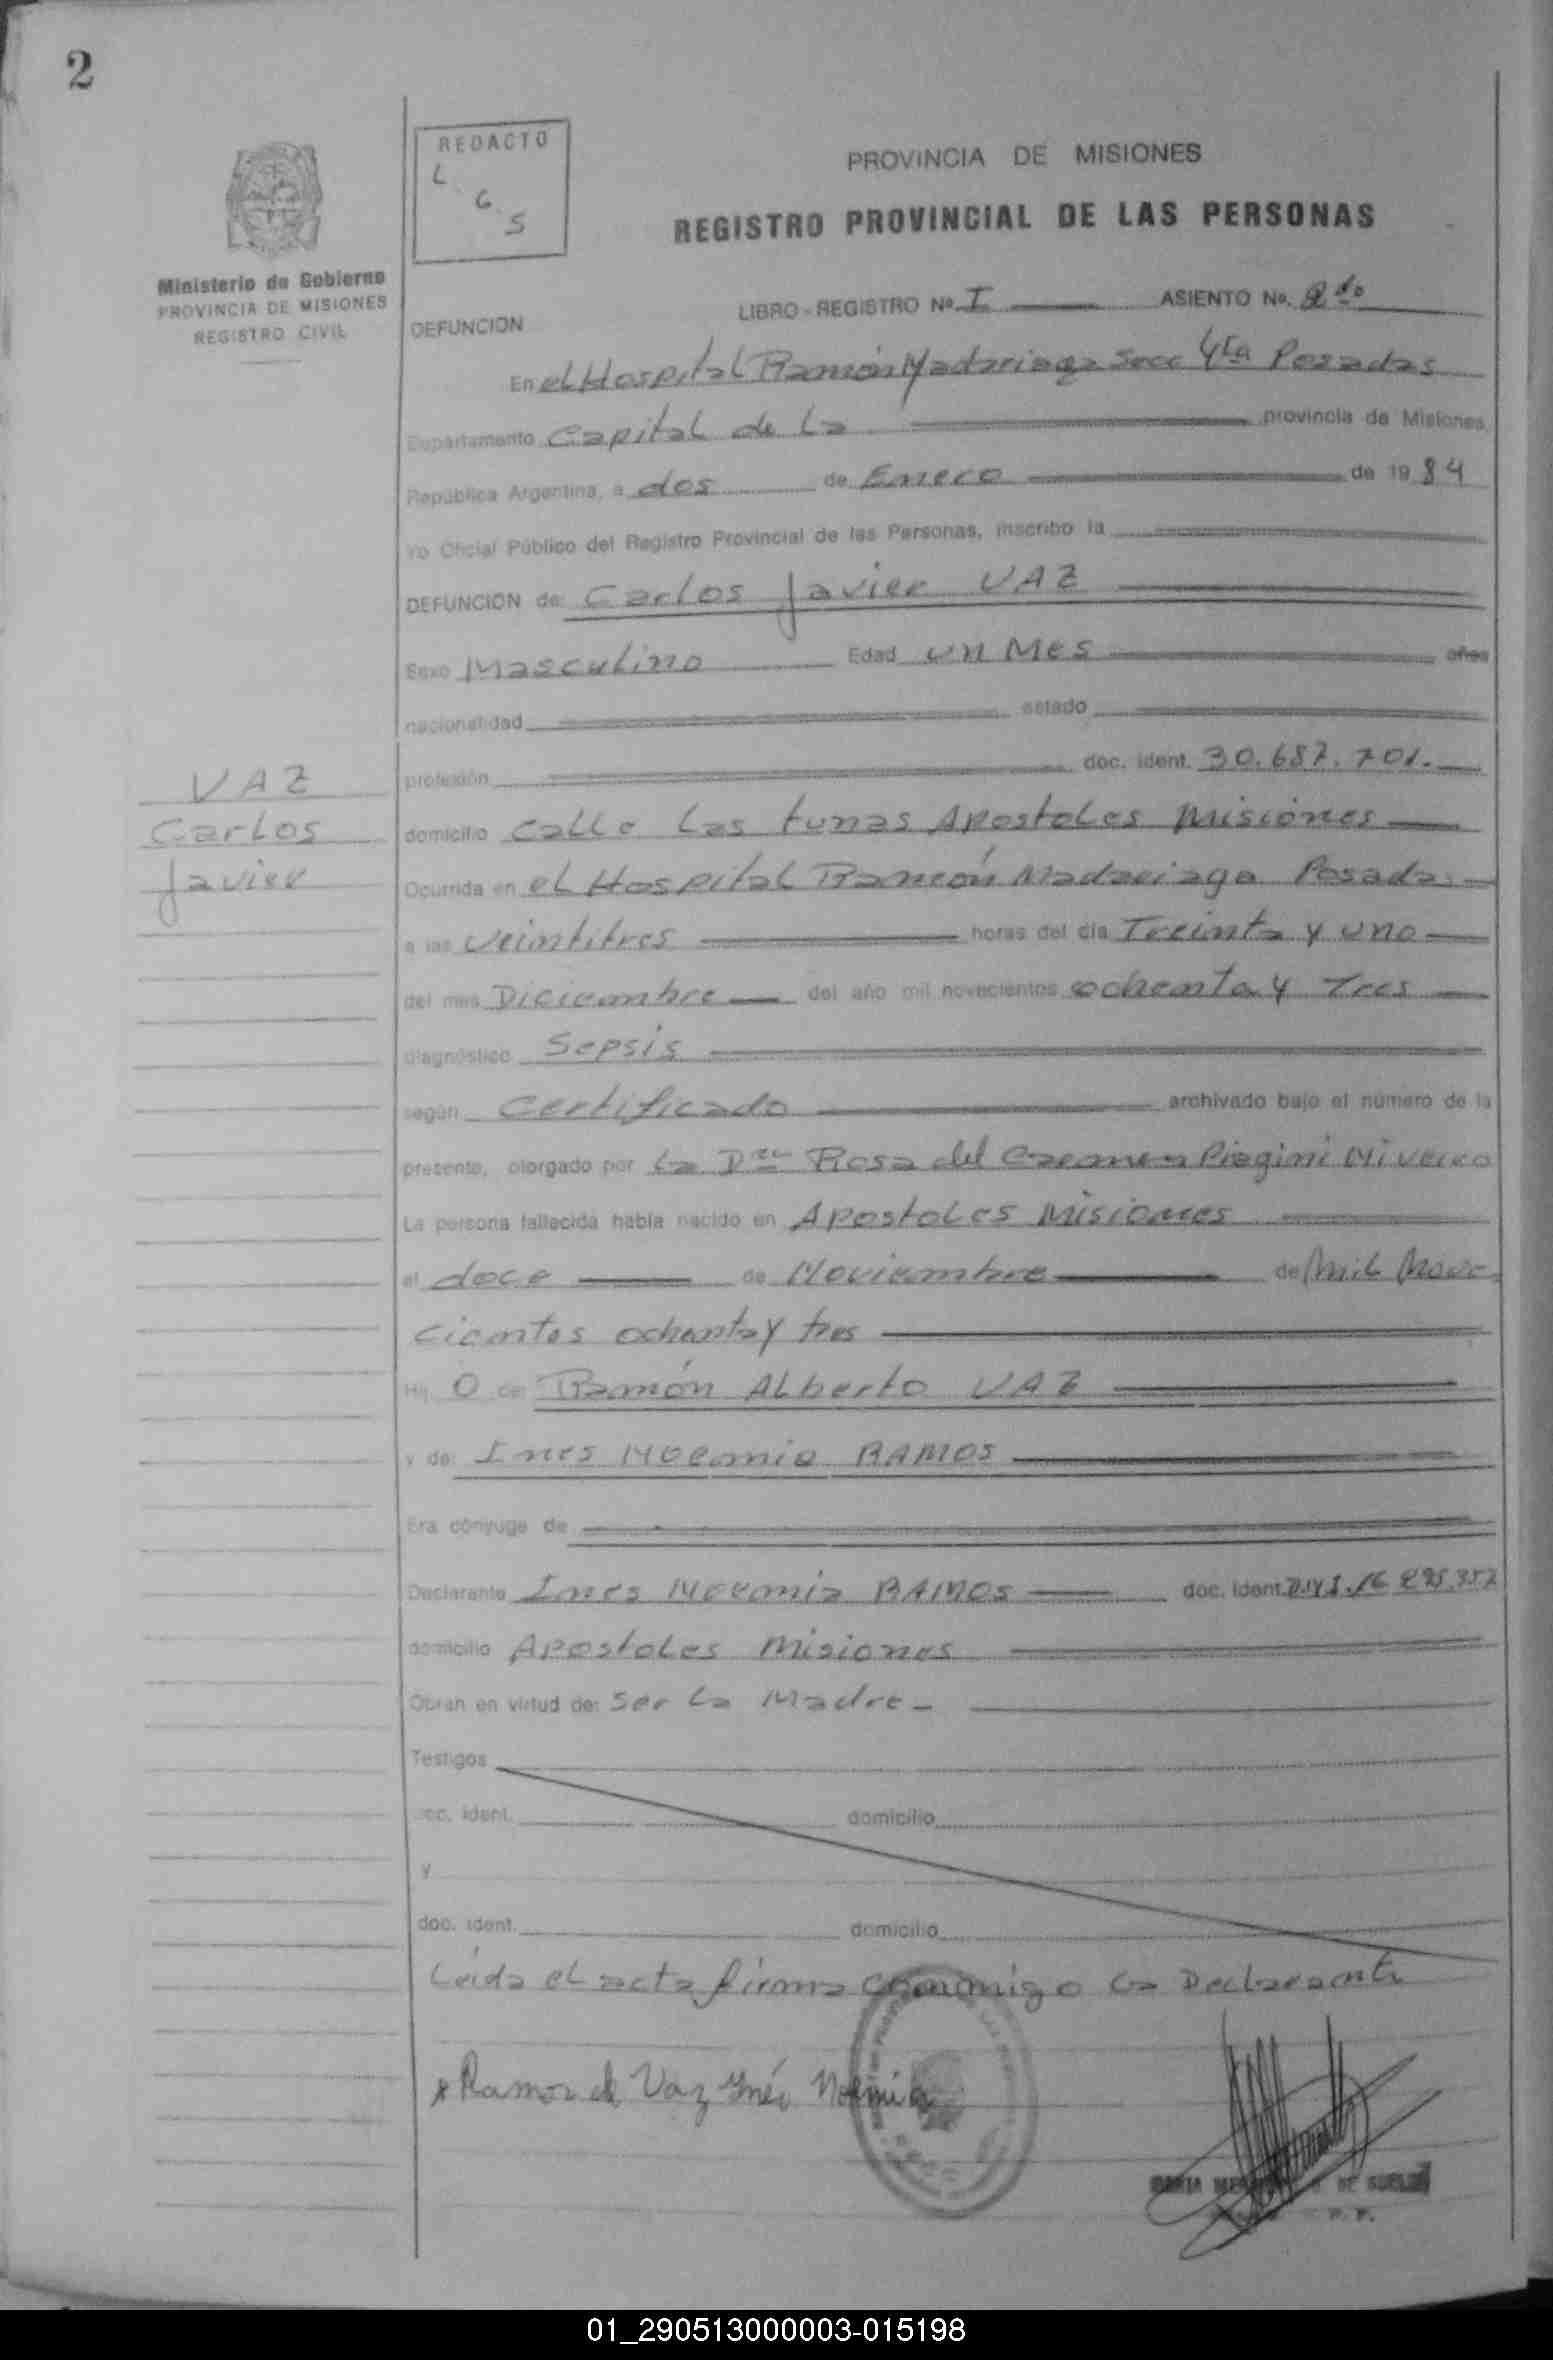 2
REDACTO
L. G. S
Ministerio de Gobierno
PROVINCIA DE MISIONES
REGISTRO CIVIL
PROVINCIA DE MISIONES
REGISTRO PROVINCIAL DE LAS PERSONAS
DEFUNCION
LIBRO - REGISTRO No. I ASIENTO No. 2do
En el Hospital Ramón Madariaga Secc 4ta Posadas
Departamento Capital de La provincia de Misiones,
República Argentina, a dos de Enero de 19 84
Yo Oficial Público del Registro Provincial de las Personas, inscribo la
DEFUNCION de: Carlos Javier VAZ
Sexo Masculino Edad un Mes años
nacionalidad estado
profesión doc. ident. 30.687.701.
VAZ
Carlos
Javier
domicilio Calle Las tunas Apostoles Misiones
Ocurrida en el Hospital Ramón Madariaga Posadas
a las veintitres horas del día Treinta y uno
del mes Diciembre del año mil novecientos ochenta y Tres
diagnóstico Sepsis
según Certificado archivado bajo el número de la
presente, otorgado por La Dra Rosa del Carmen
La persona fallecida había nacido en Apostoles Misiones
el doce de Noviembre de Mil Nove
cientos ochenta y tres
Hij O de: Ramón ALberto VAZ
y de: Ines Noemia RAMOS
Era cónyuge de
Declarante Ines Noemia RAMOS doc. ident. D.N.I. 16.
domicilio Apostoles Misiones
Obran en virtud de: Ser La Madre-
Testigos
doc. ident. domicilio
y
doc. ident. domicilio
Leida el acta firma conmigo La Declarante
Ramos de Vaz Inés Noemia
MARIA DE
01_290513000003-015198